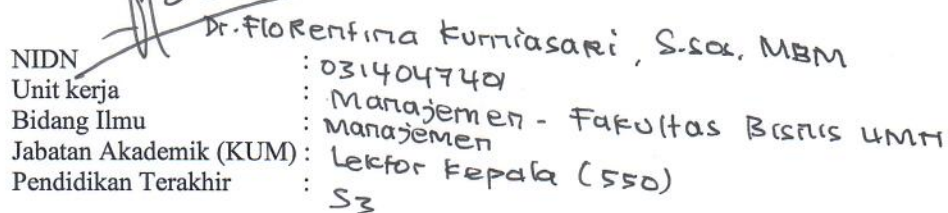 Dr. Florentina Kurniasari, S.sos, MBM
NIDN : 0314047401
Unit kerja : Manajemen - Fakultas Bisnis UMN
Bidang Ilmu : Manajemen
Jabatan Akademik (KUM) : Lektor Kepala (550)
Pendidikan Terakhir : S3